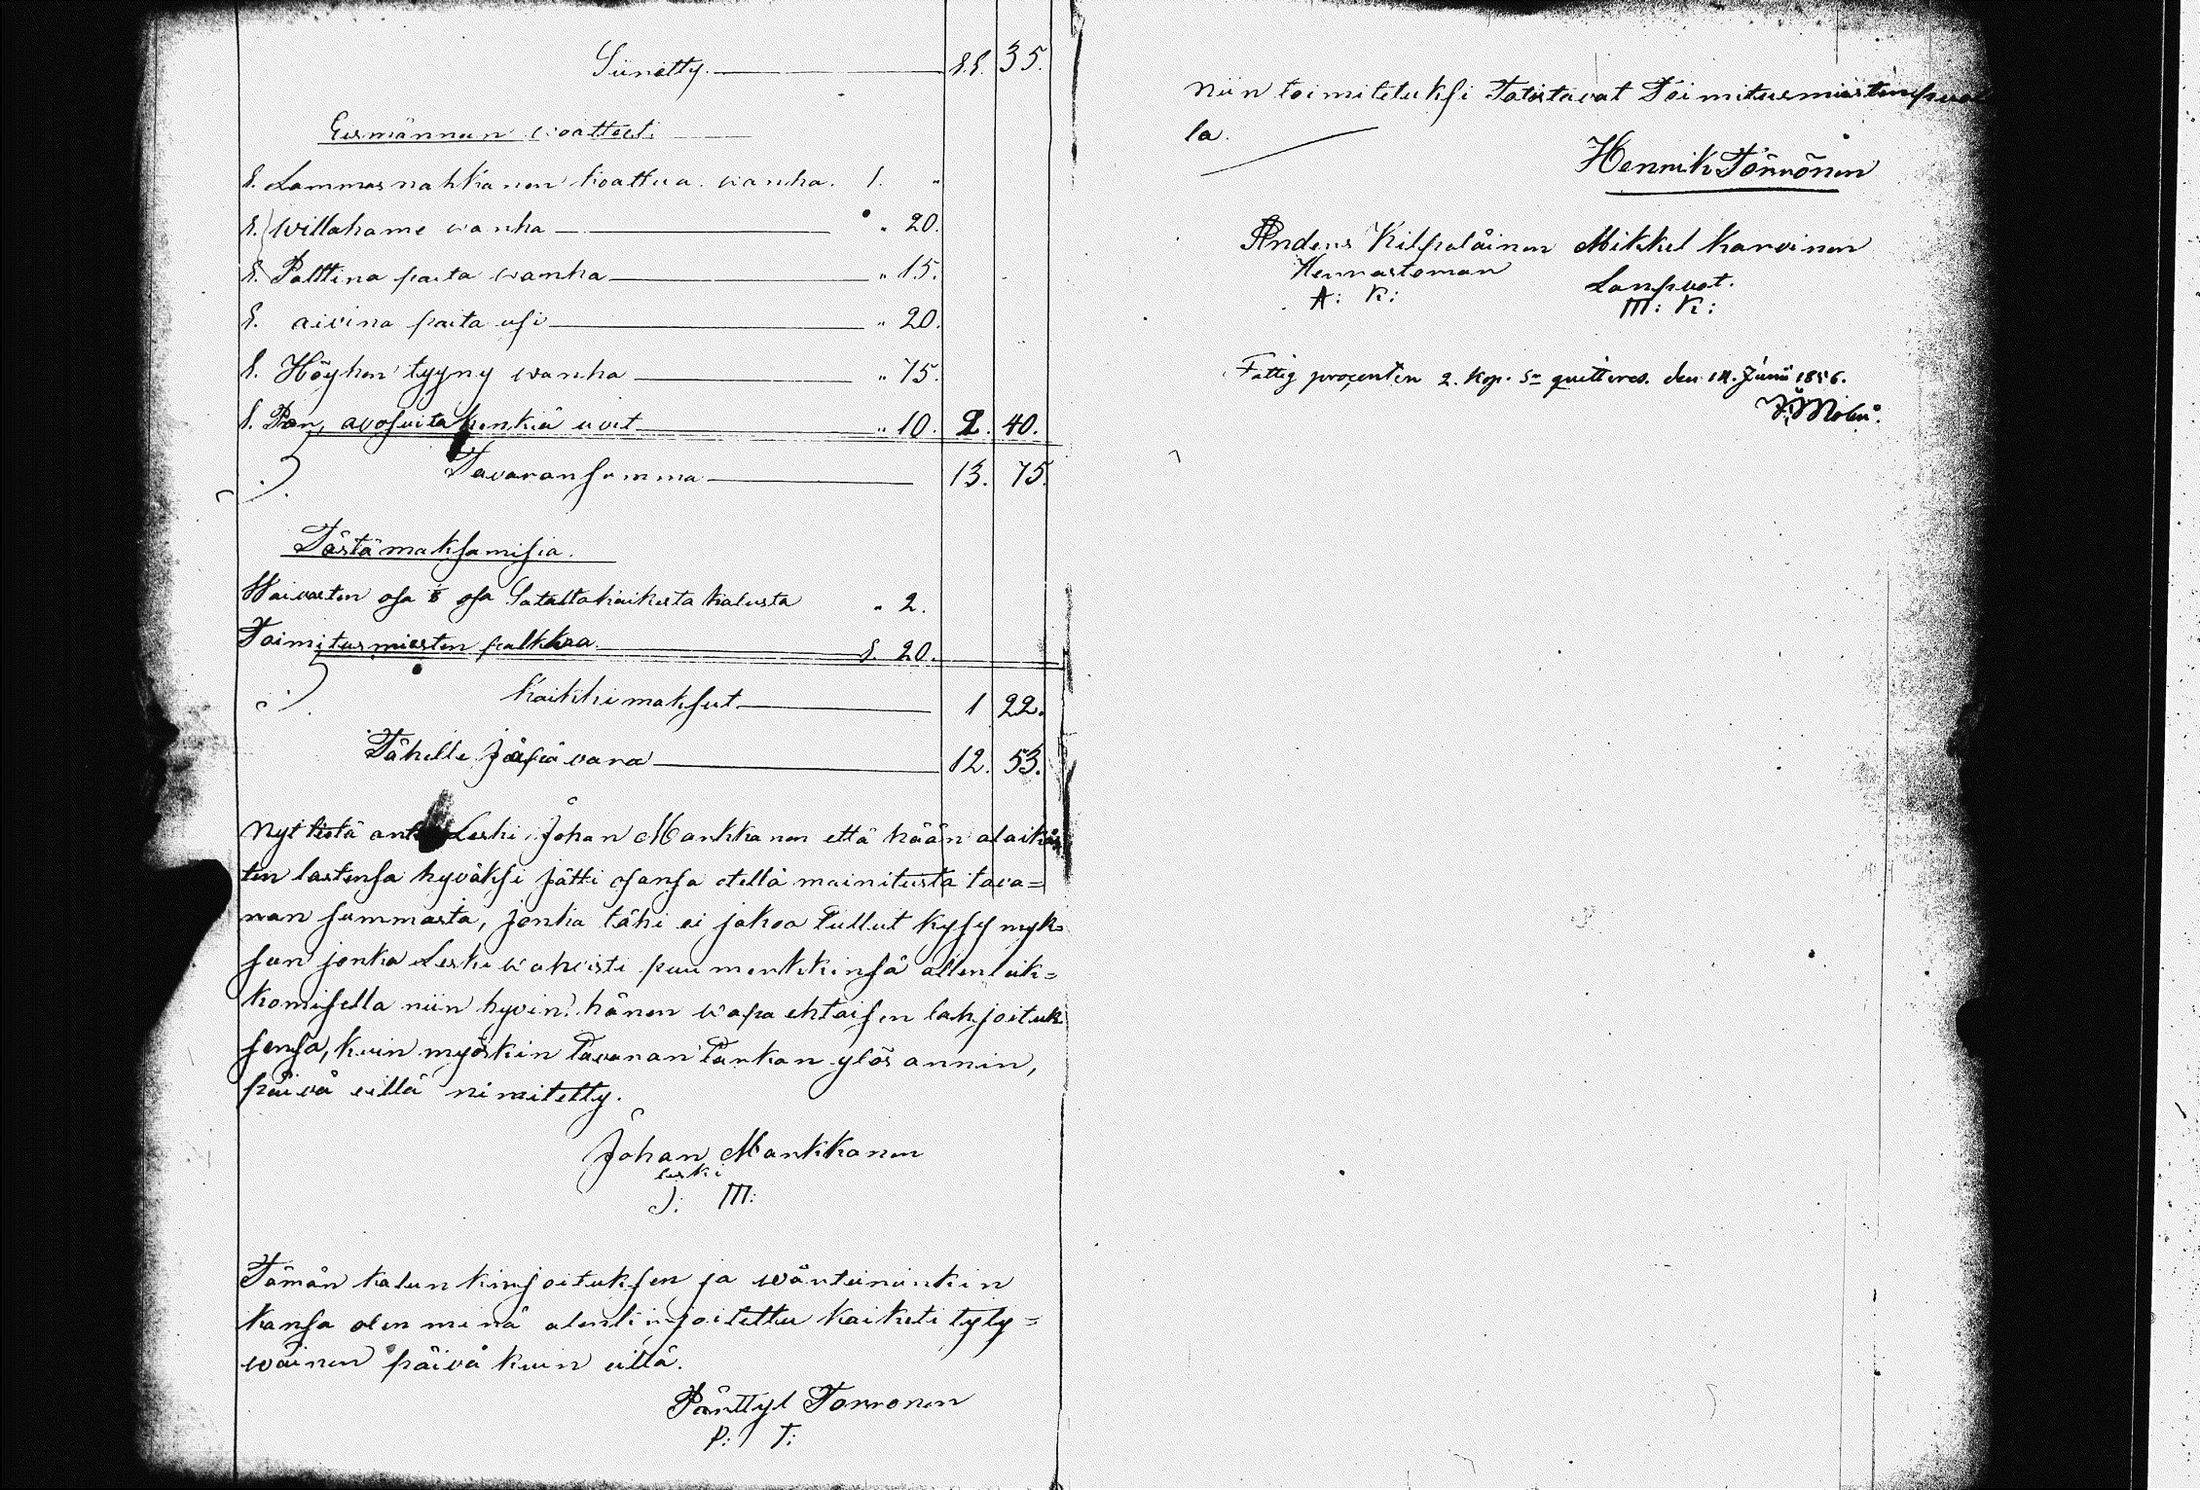 Siirretty. 11. 35.
Eismännun woatteet
1. Lammasnahkanen koattua wanha. 1. "
1. willahame wanha " 20.
1. Palttina paita wanha " 15.
1. aivina paita usi " 20.
1. Höyhen tyyny wanha " 75.
1. Par, avosuita kenkiä uvet " 10. 2. 40.
Tavaransumma 13. 75.
Tästä maksamisia.
Waivasten osa osa Satalta kaikesta kalusta " 2.
Toimitusmiesten palkkaa 1. 20.
Kaikki maksut 1 22.
Tähelle jääpä vara 12. 53.
Nyt tästä Leski Johan Markkanen että hään alaikäs
ten lastensa hyväksi jätti osansa etellä mainitusta tava=
ran summasta, jonka tähi ei jakoa tullut kysymyk=
seen jonka Leski wahvisti puumerkkinsä allenluk=
komisella niin hyvin hänen wapaehtaisen lahjoituk
sensa, kuin myöskin Tavaran Tarkan ylös annin,
päivä eillä nimitetty.
Johan Markkanen
leski
J: M:
Tämän kalun kirjoituksen ja wärteeraukin
kansa olen minä alenkirjoitettu kaiketi tyty=
wäinen päivä kuin eillä.
Pärttyl Torronen
P: T:
Niin toimitetuksi Totistavat Toimitusmiesten puol
la.
Henrik Törrönen
Anders Kilpaläinen Mikkel Karvinen
Hernastoman Lanpuot.
A: K: M: K:
Fattig procenten 2. Kop. Sr quitteras. den 14. Junii 1856.